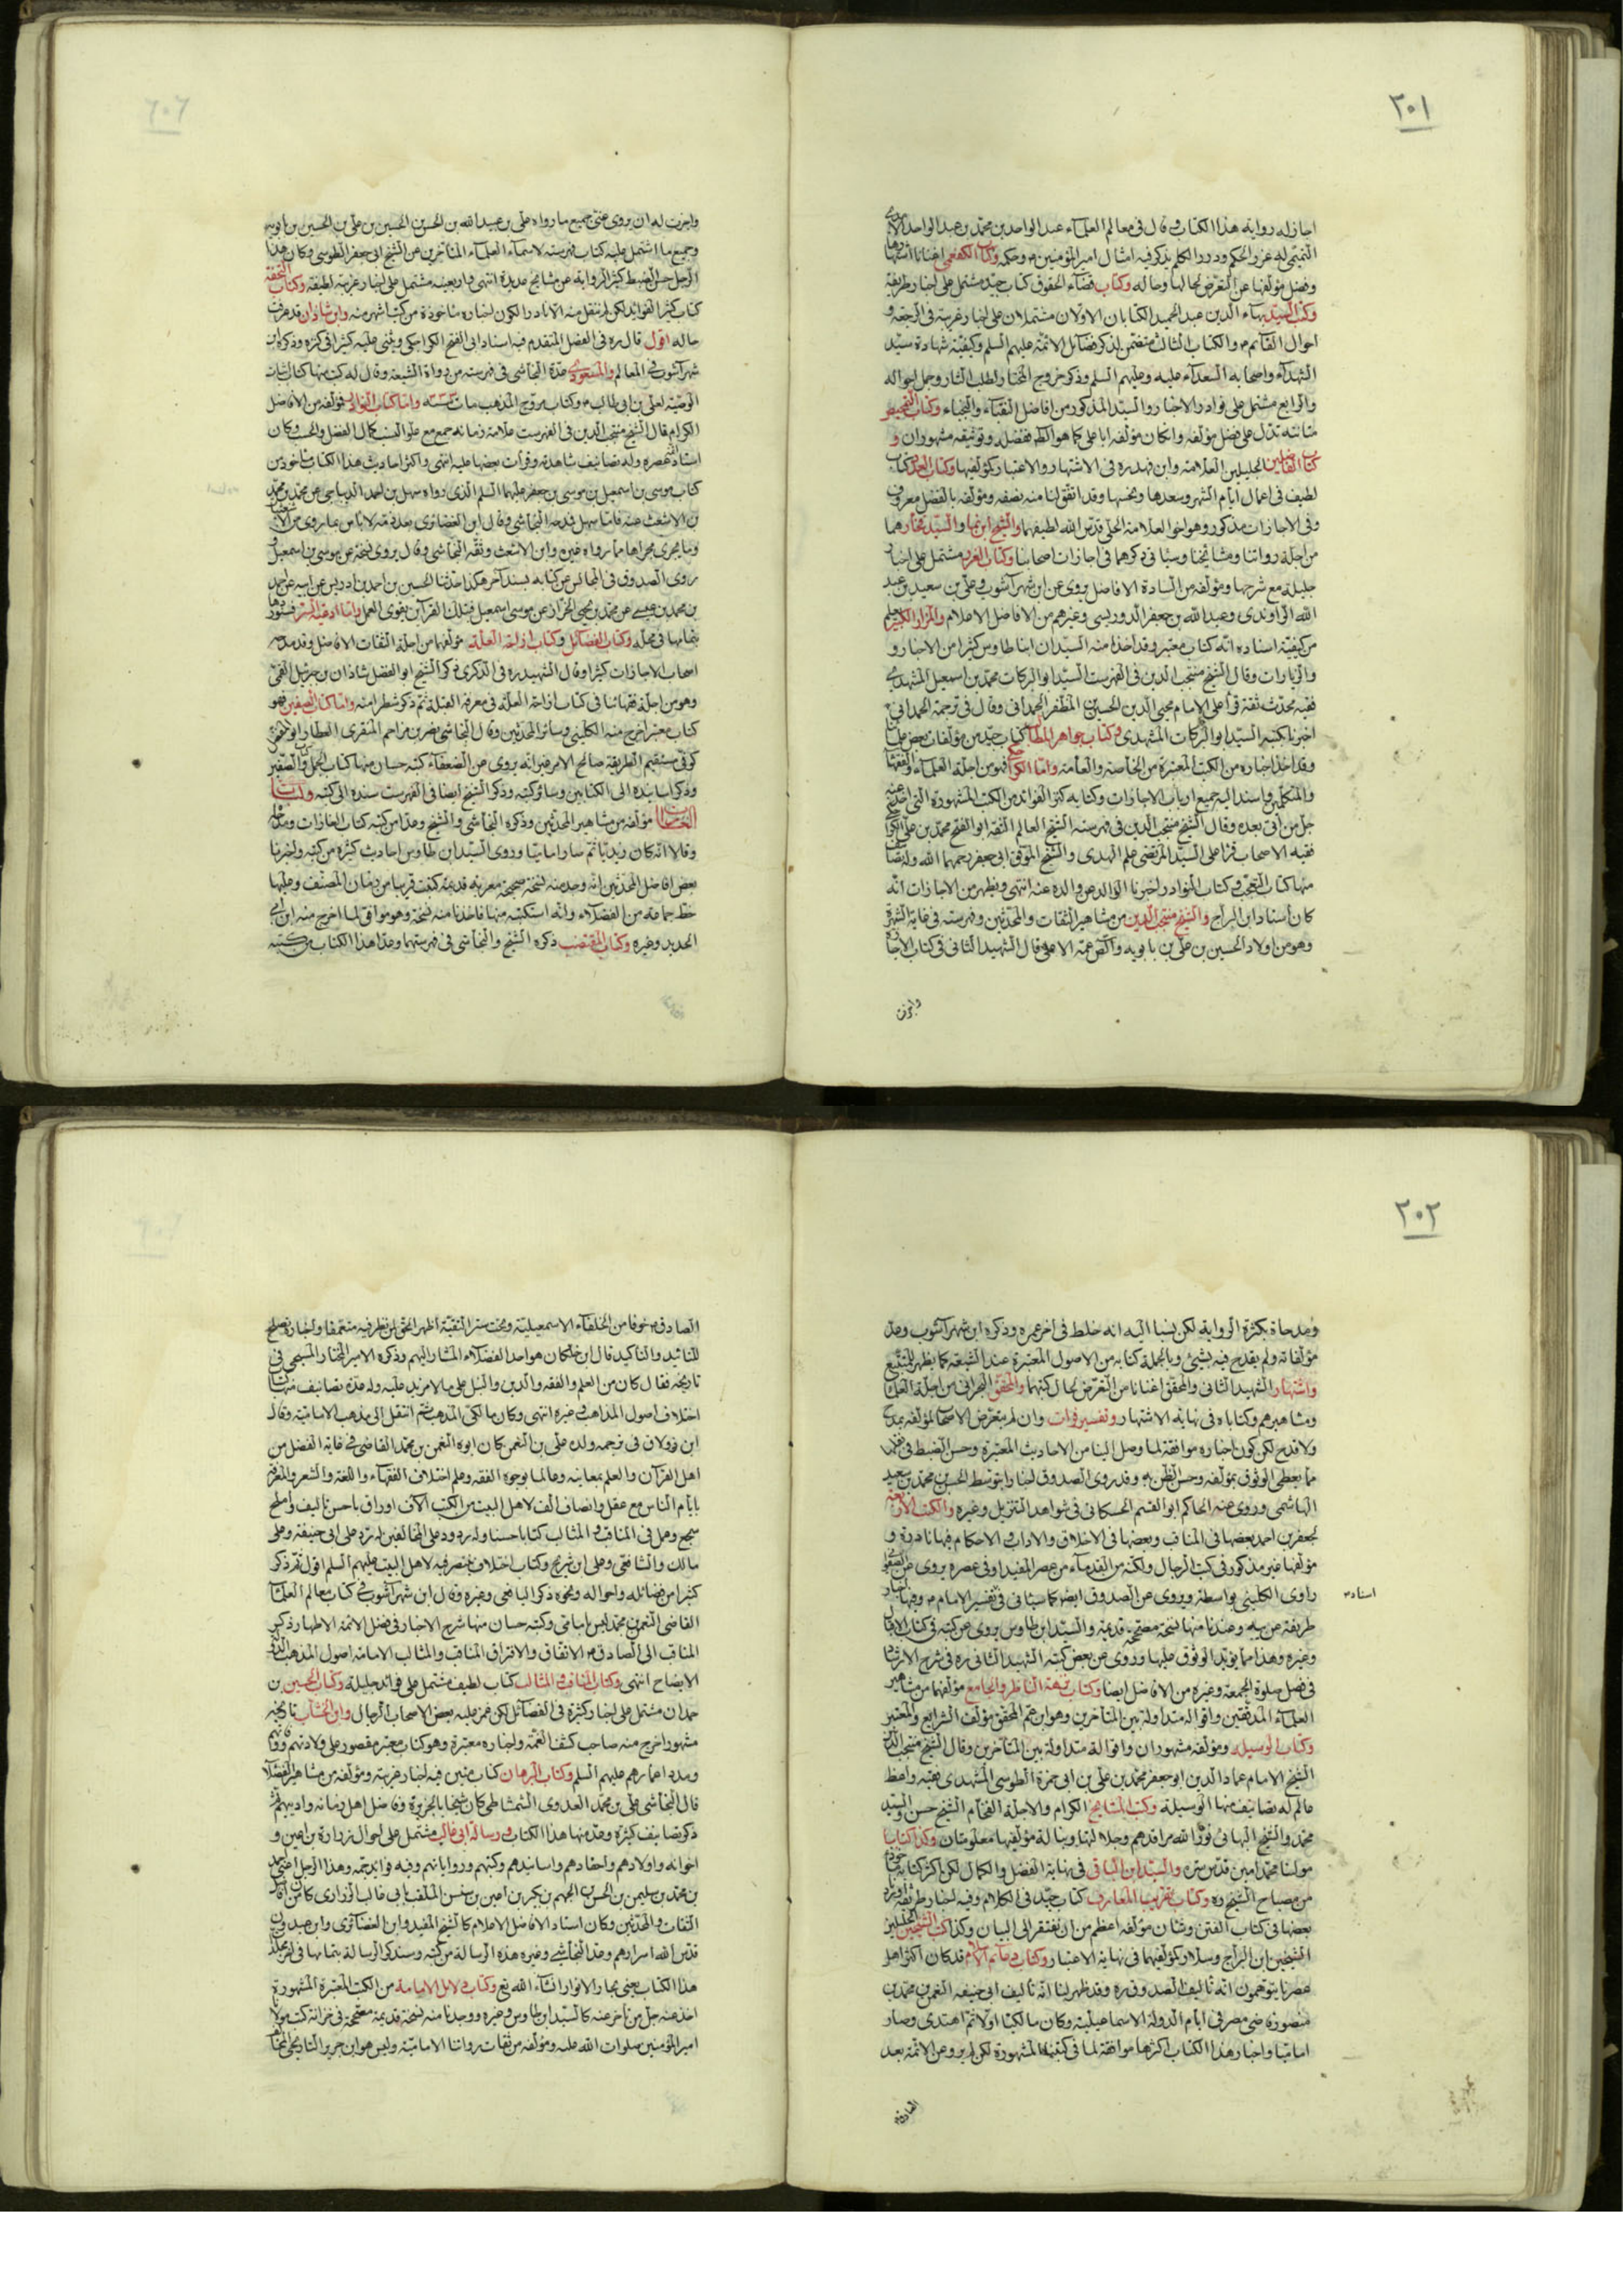 ٢٠١
اجاز له رواية هذا الكتاب وقال فى معالم العلماء عبد الواحد بن محمد بن عبد الواحد الآمدى
التميمى له غرر الحكم ودرر الكلم يذكر فيه امثال امير المؤمنين م وحكمه وكتاب الكفعمى اغنانا اشتهارها
وفضل مؤلفها عن التعرض لحالها وحاله وكتاب قضاء الحقوق كتاب جيد مشتمل على اخبار طريفة
وكتب السيد بهاء الدين عبد الحميد الكتابان الاولان مشتملان على اخبار غريبة فى الرجعة و
احوال القائم م والكتاب الثالث متضمن لذكر فضائل الائمة عليهم السلم وكيفية شهادة سيد
الشهداء واصحابه السعداء عليه وعليهم السلم وذكر خروج المختار لطلب الثار وجمل احواله
والرابع مشتمل على نوادر الاخبار والسيد المذكور من افاضل النقباء والنجباء وكتاب التمحيص
متانته تدل على فضل مؤلفه وان كان مؤلفه ابا على كما هو الظ ففضله وتوثيقه مشهوران و
كتابا الفاضلين الجليلين العلامة وابن فهد ره فى الاشتهار والاعتبار كمؤلفيها وكتاب العدد كتاب
لطيف فى اعمال ايام الشهر وسعدها ونحسها وقد اتفق لنا منه نصفه ومؤلفه بالفضل معروف
وفى الاجازات مذكور وهو اخو العلامة الحلى قدس الله لطيفهما والشيخ ابن نما والسيد فخار هما
من اجلة رواتنا ومشايخنا وسيأتى ذكرهما فى اجازات اصحابنا وكتاب الغرر مشتمل على اخبار
جليلة مع شرحها ومؤلفه من السادة الافاضل يروى عن ابن شهرآشوب وعلى بن سعيد بن هبة
الله الراوندى وعبد الله بن جعفر الدوريستى وغيرهم من الافاضل الاعلام والمزار الكبير يعلم
من كيفية اسناده انه كتاب معتبر وقد اخذ منه السيدان ابنا طاوس كثيرا من الاخبار و
والزيارات وقال الشيخ منتجب الدين فى الفهرست السيد ابو البركات محمد بن اسمعيل المشهدى
فقيه محدث ثقة قرأ على الامام محيى الدين الحسين بن المظفر الحمدانى وقال فى ترجمة الحمدانى
اخبرنا بكتبه السيد ابو البركات المشهدى وكتاب جواهر المطالب كتاب جيد من مؤلفات بعض علمائنا
وقد اخذ اخباره من الكتب المعتبرة من الخاصة والعامة واما الكراجكى فهو من اجلة العلماء والفقهاء
والمتكلمين واسند اليه جميع ارباب الاجازات وكتابه كنز الفوائد من الكتب المشهورة التى اخذ عنه
جل من اتى بعده وقال الشيخ منتجب الدين فى فهرسته الشيخ العالم الثقة ابو الفتح محمد بن على الكراجكى
فقيه الاصحاب قرأ على السيد المرتضى علم الهدى والشيخ الموفق ابى جعفر رحمهما الله وله تصانيف
منها كتاب التعجب وكتاب النوادر اخبرنا الوالد عن والده عنه انتهى ويظهر من الاجازات انه
كان أستاد ابن البراج والشيخ منتجب الدين من مشاهير الثقات والمحدثين وفهرسته فى غاية الشهرة
وهو من اولاد الحسين بن على بن بابويه والصدوق عمه الاعلى قال الشهيد الثانى فى كتاب الاجازة
واجزت
واجزت له ان يروى عنى جميع ما رواه على بن عبيد الله بن الحسن بن الحسين بن على بن الحسين بن بابويه
وجميع ما اشتمل عليه كتاب فهرسته لاسماء العلماء المتأخرين عن الشيخ ابى جعفر الطوسى وكان هذا
الرجل حسن الضبط كثير الرواية عن مشايخ عديدة انتهى واربعينه مشتمل على اخبار غريبة لطيفة وكتاب التحفة
كتاب كثير الفوائد لكن لم ننقل منه الا نادرا لكون اخباره مأخوذة من كتب اشهر منه وابن شاذان قد عرفت
حاله اقول قال ره فى الفصل المتقدم فيه استاد ابى الفتح الكراجكى ويثنى عليه كثيرا فى كنزه وذكره ابن
شهرآشوب فى المعالم والمسعودى عده النجاشى فى فهرسته من رواة الشيعة وقال له كتب منها كتاب اثبات
الوصية لعلى بن ابى طالب م وكتاب مروج الذهب مات واما كتاب النوادر فمؤلفه من الافاضل
الكرام قال الشيخ منتجب الدين فى الفهرست علامة زمانه جمع مع علو النسب كمال الفضل والحسب وكان
استاد ائمة عصره وله تصانيف شاهدته وقرأت بعضها عليه انتهى واكثر احاديث هذا الكتاب مأخوذ من
كتاب موسى بن اسمعيل بن موسى بن جعفر عليهما السلم الذى رواه سهل بن احمد الديباجى عن محمد بن محمد
بن الاشعث عنه فاما سهل فمدحه النجاشى وقال ابن الغضائرى بعد ذمه لا بأس بما روى من الاشعثيات
وما يجرى مجراها مما رواه غيره وابن الاشعث وثقه النجاشى وقال يروى نسخة عن موسى بن اسمعيل و
روى الصدوق فى المجالس عن كتابه بسند آخر هكذا حدثنا الحسين بن احمد بن ادريس عن ابيه عن احمد
بن محمد بن عيسى عن محمد بن يحيى الخزاز عن موسى اسمعيل فبتلك القرائن يقوى العمل واما ادعية السر فسنوردها
بتمامها فى محله وكتاب الفضائل وكتاب ازاحة العلة مؤلفهما من اجلة الثقات الافاضل وقد مدحه
اصحاب الاجازات كثيرا وقال الشهيد ره فى الذكرى ذكر الشيخ ابو الفضل شاذان بن جبرئيل القمى
وهو من اجلة فقهائنا فى كتاب ازاحة العلة فى معرفة القبلة ثم ذكر شطرا منه واما كتاب الصفين فهو
كتاب معتبر اخرج منه الكلينى وسائر المحدثين وقال النجاشى نصر بن مزاحم المنقرى العطار ابو الفضل
كوفى مستقيم الطريقة صالح الامر غير انه يروى عن الضعفاء كتبه حسان منها كتاب الجمل وكتاب الصفين
وذكر اسانيده الى الكتابين وسائر كتبه وذكر الشيخ ايضا فى الفهرست سنده الى كتبه وكتاب
الغارات مؤلفه من مشاهير المحدثين وذكره النجاشى والشيخ وعدا من كتبه كتاب الغارات ومدحاه
وقالا انه كان زيديا ثم صار اماميا وروى السيد ابن طاوس احاديث كثيرة من كتبه واخبرنا
بعض افاضل المحدثين انه وجد منه نسخة صحيحة معربة قديمة كتبت قريبا من زمان المصنف وعليها
خط جماعة من الفضلاء وانه استكتبه منها فاخذنا منه نسخة وهو موافق لما اخرج منه ابن ابى
الحديد وغيره وكتاب المقتضب ذكره الشيخ والنجاشى فى فهرستهما وعدا هذا الكتاب من كتبه
٢٠٢
ومدحاه بكثرة الرواية لكن نسبا اليه انه خلط فى آخر عمره وذكره ابن شهرآشوب وعد
مؤلفاته ولم يقدح فيه بشيئ وبالجملة كتابه من الاصول المعتبرة عند الشيعة كما يظهر للمتتبع
واشتهار الشهيد الثانى والمحقق اغنانا من التعرض لحال كتبهما والمحقق البحرانى من اجلة العلماء
ومشاهيرهم وكتاباه فى نهاية الاشتهار وتفسير فرات وان لم يتعرض الاصحاب لمؤلفه بمدح
ولا قدح لكن كون اخباره موافقة لما وصل الينا من الاحاديث المعتبرة وحسن الضبط فى نقلها
مما يعطى الوثوق بمؤلفه وحسن الظن به وقد روى الصدوق اخبارا بتوسط الحسن بن محمد بن سعيد
الهاشمى وروى عنه الحاكم ابو القسم الحسكانى فى شواهد التنزيل وغيره والكتب الاربعة
لجعفر بن احمد بعضها فى المناقب وبعضها فى الاخلاق والاداب والاحكام فيها نادرة و
مؤلفها غير مذكور فى كتب الرجال ولكنه من القدماء من عصر المفيد او فى عصره يروى عن الصفوانى
راوى الكلينى بواسطة ويروى عن الصدوق ايضا كما سيأتى فى تفسير الامام م وفيها اخبار
اسناد
طريفة غريبة وعندنا منها نسخة مصححة قديمة والسيد ابن طاوس يروى عن كتبه فى كتاب الاقبال
وغيره وهذا مما يؤيد الوثوق عليها وروى عن بعض كتبه الشهيد الثانى ره فى شرح الارشاد
فى فضل صلوة الجمعة وغيره من الافاضل ايضا وكتاب نزهة الناظر والجامع مؤلفهما من مشاهير
العلماء المدققين واقواله متداولة بين المتأخرين وهو ابن عم المحقق مؤلف الشرايع والمعتبر
وكتاب الوسيلة ومؤلفه مشهوران واقواله متداولة بين المتأخرين وقال الشيخ منتجب الدين
الشيخ الامام عماد الدين ابو جعفر محمد بن على بن ابى حمزة الطوسى المشهدى فقيه واعظ
عالم له تصانيف منها الوسيلة وكتب المشايخ الكرام والاجلة الفخام الشيخ حسن والسيد
محمد والشيخ البهائى نور الله مراقدهم وجلالتها ونبالة مؤلفيها معلومتان وكذا كتابا
مولنا محمد امين قدس سره والسيد ابن الباقى فى نهاية الفضل والكمال لكن اكثر كتابه مأخوذ
من مصباح الشيخ ره وكتاب تقريب المعارف كتاب جيد فى الكلام وفيه اخبار طريفة اوردنا
بعضها فى كتاب الفتن وشان مؤلفه اعظم من ان يفتقر الى البيان وكذا كتب الشيخين الجليلين
الشيخين ابن البراج وسلار كمؤلفيهما فى نهاية الاعتبار وكتاب دعائم الاسلام قد كان اكثر اهل
عصرنا يتوهمون انه تأليف الصدوق ره وقد ظهر لنا انه تأليف ابى حنيفه النعمن بن محمد بن
منصور قاضى مصر فى ايام الدولة الاسماعيلية وكان مالكيا اولا ثم اهتدى وصار
اماميا واخبار هذا الكتاب اكثرها موافقة لما فى كتبنا المشهورة لكن لم يرو عن الائمة بعد
الصادق م
الصادق م خوفا من الخلفاء الاسمعيلية وتحت ستر التقية اظهر الحق لمن نظر فيه متعمقا واخباره تصلح
للتائيد والتاكيد قال ابن خلكان هو احد الفضلاء المشار اليهم وذكره الامير المختار المسبحى فى
تاريخه فقال كان من العلم والفقه والدين والنبل على ما لا مزيد عليه وله عدة تصانيف منها كتاب
اختلاف اصول المذاهب وغيره انتهى وكان مالكى المذهب ثم انتقل الى مذهب الامامية وقال
ابن زولاق فى ترجمة ولده على بن النعمن كان ابوه النعمن بن محمد القاضى فى غاية الفضل من
اهل القرآن والعلم بمعانيه وعالما بوجوه الفقه وعلم اختلاف الفقهاء واللغة والشعر والمعرفة
بايام الناس مع عقل وانصاف الف لاهل البيت من الكتب الاف اوراق باحسن تأليف وأملح
سجع وعمل فى المناقب والمثالب كتابا حسنا وله ردود على المخالفين له رد على ابى حنيفة وعلى
مالك والشافعى وعلى ابن شريح وكتاب اختلاف ينتصر فيه لاهل البيت عليهم السلم اقول ثم ذكر
كثيرا من فضائله واحواله ونحوه ذكر اليافعى وغيره وقال ابن شهرآشوب فى كتاب معالم العلماء
القاضى النعمن بن محمد ليس بامامى وكتبه حسان منها شرح الاخبار فى فضل الائمة الاطهار ذكر
المناقب الى الصادق م الاتفاق والافتراق المناقب والمثالب الامامة اصول المذهب الدولة
الايضاح انتهى وكتاب المناقب والمثالب كتاب لطيف مشتمل على فوائد جليلة وكتاب الحسين بن
حمدان مشتمل على اخبار كثيرة فى الفضائل لكن غمز عليه بعض الاصحاب الرجال وابن الخشاب تاريخه
مشهور اخرج منه صاحب كشف الغمة واخباره معتبرة وهو كتاب معتبر مقصور على ولادتهم ووفاتهم
ومدد اعمارهم عليهم السلم وكتاب البرهان كتاب متين فيه اخبار غريبة ومؤلفه من مشاهير الفضلاء
قال النجاشى على بن محمد العدوى الشمشاطى كان شيخا بالجزيرة وفاضل اهل زمانه واديبهم ثم
ذكر تصانيف كثيرة وعد منها هذا الكتاب ورسالة ابى غالب مشتمل على احوال زرارة بن اعين و
اخوانه واولادهم واحفادهم واسانيدهم وكتبهم ورواياتهم وفيه فوائد جمة وهذا الرجل اعنى احمد
بن محمد بن سليمن بن الحسن بن الجهم بن بكير بن اعين بن سنسن الملقب بابى غالب الزرارى كان من افاضل
الثقات والمحدثين وكان استاد الافاضل الاعلام كالشيخ المفيد وابن الغضائرى وابن عبدون
قدس الله اسرارهم وعد النجاشى وغيره هذه الرسالة من كتبه وسنذكر الرسالة بتمامها فى آخر مجلد
هذا الكتاب يعنى بحار الانوار انشاء الله تع وكتاب دلائل الامامة من الكتب المعتبرة المشهورة
اخذ عنه جل من تاخر عنه كالسيد ابن طاوس وغيره ووجدنا منه نسخة قديمة مصححة فى خزانة كتب مولانا
امير المؤمنين صلوات الله عليه ومؤلفه من ثقات رواتنا الامامية وليس هو ابن جرير التاريخى المخالف